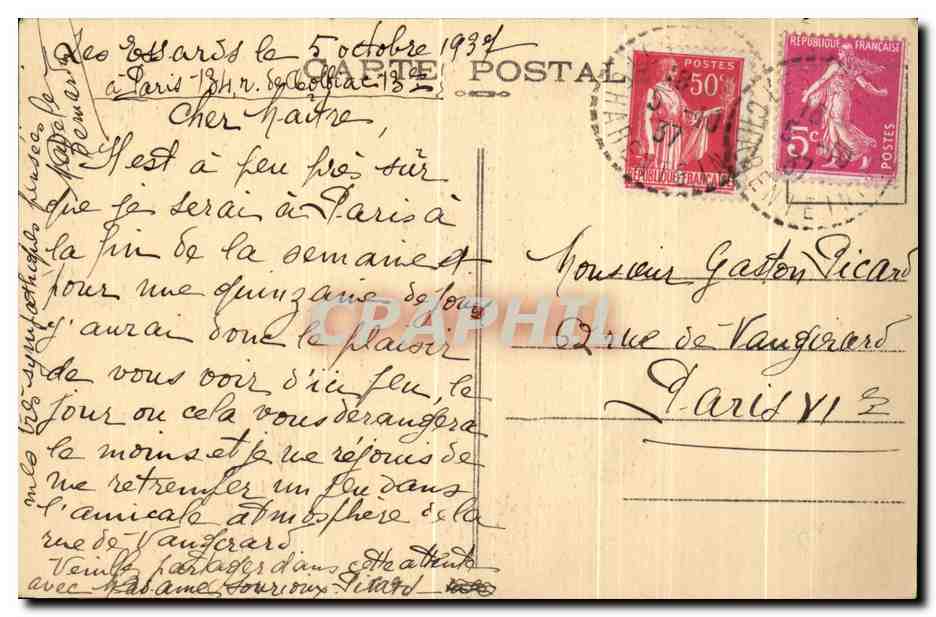 Les Essards le 5 octobre 1937
à Paris 134, r. de Tolbiac 13e
CARTE POSTALE
Cher Maître,
Il est à peu près sûr
que je serai à Paris à
la fin de la semaine et
pour une quinzaine de jours
j'aurai donc le plaisir
de vous voir d'ici peu, le
jour où cela vous dérangera
le moins et je me réjouis de
me retremper un peu dans
l'amicale atmosphère de la
rue de Vaugirard
Veuillez partager dans cette attente
avec Madame Picard
mes très sympathiques pensées
POSTES
50c
RÉPUBLIQUE FRANÇAISE
RÉPUBLIQUE FRANÇAISE
5c
POSTES
37
CHARENTE INF
Monsieur Gaston Picard
62 rue de Vaugirard
Paris VIe
CPAPHIL